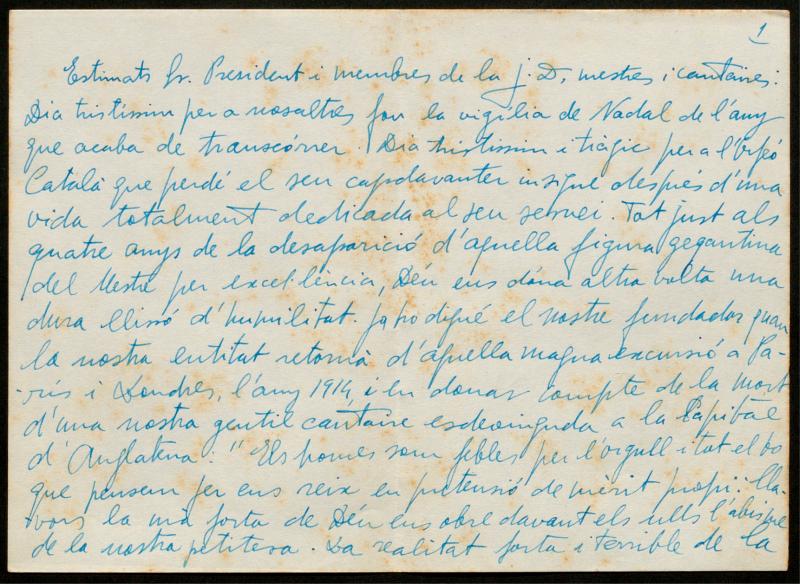 1
Estimats Sr. President i membres de la J. D., mestres i cantaires:
Dia tristíssim per a nosaltres fou la vigília de Nadal de l'any
que acaba de transcórrer. Dia tristíssim i tràgic per a l'Orfeó
Català que perdé el seu capdavanter insigne després d'una
vida totalment dedicada al seu servei. Tot just als
quatre anys de la desaparició d'aquella figura gegantina
del Mestre per excel·lència, Déu ens dóna altra volta una
dura lliçó d'humilitat. Ja ho digué el nostre fundador quan
la nostra entitat retornà d'aquella magna excursió a Pa-
rís i Londres, l'any 1914, i en donar compte de la mort
d'una nostra gentil cantaire esdevinguda a la Capital
d'Anglaterra: "Els homes som febles per l'orgull i tot el bo
que pensem fer ens reix en pretensió de mèrit propi: lla-
vors la mà forta de Déu ens obre davant els ulls l'abisme
de la nostra petitesa. La realitat forta i terrible de la